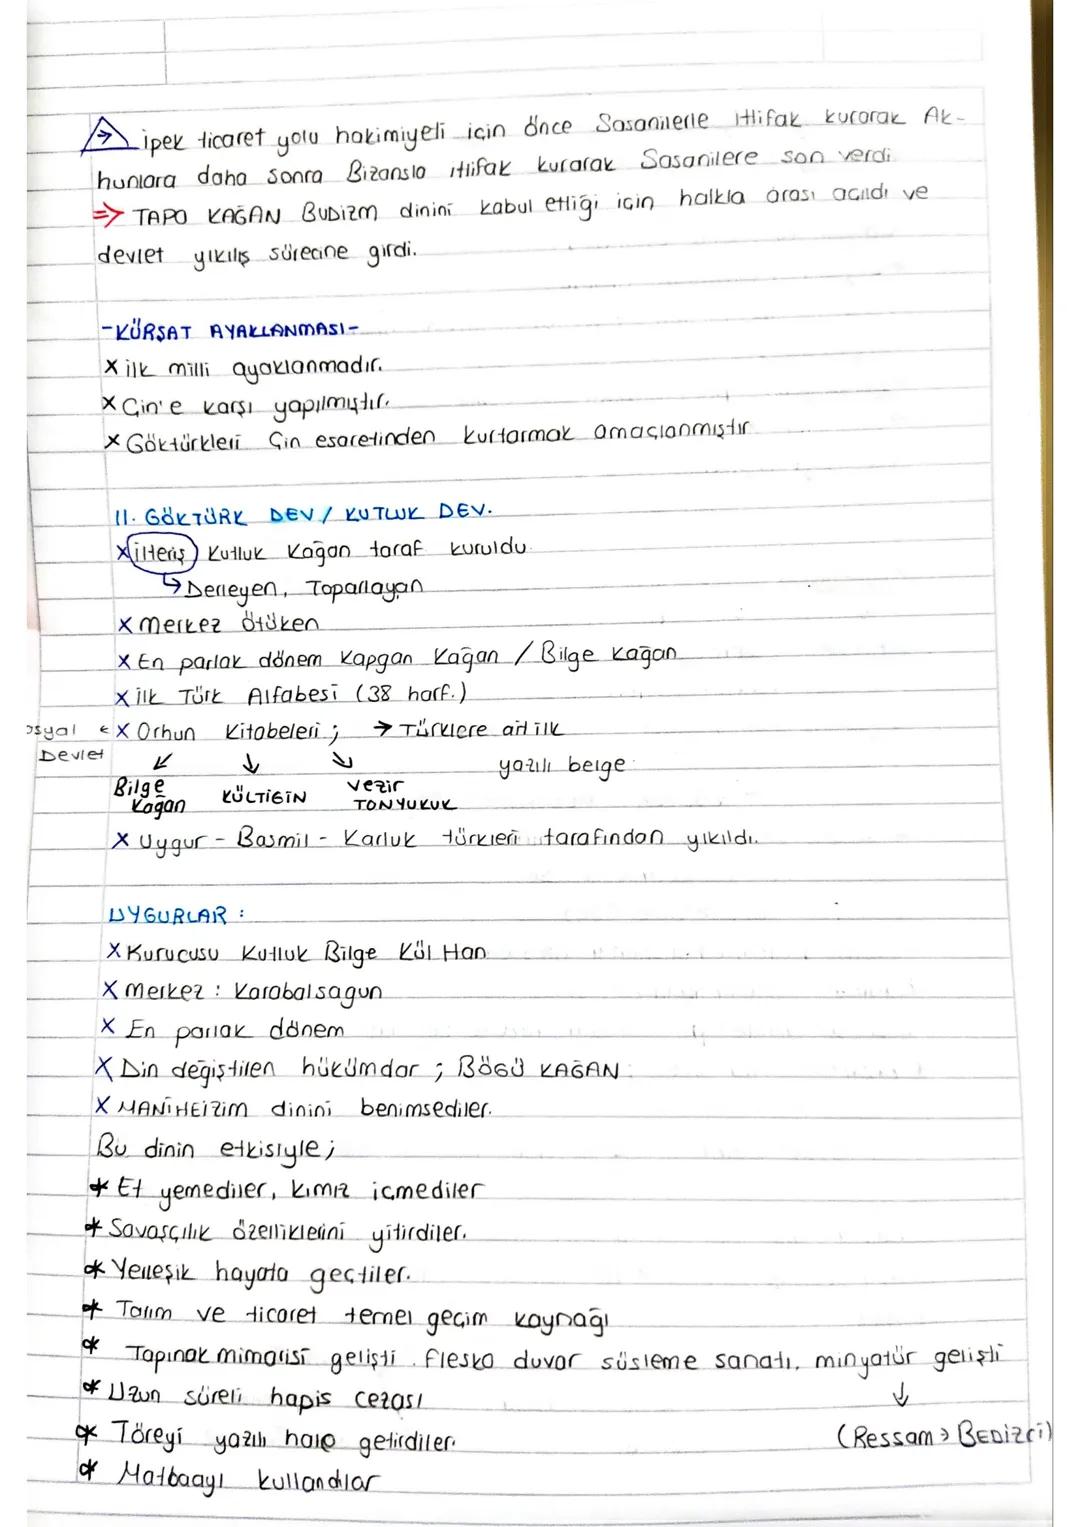 → ipek ticaret yolu hakimiyeti için önce Sasanilerle ittifak kurarak Ak-
hunlara daha sonra Bizansla ittifak kurarak Sasanilere son verdi
⇒ TAPO KAĞAN BUDİZM dinini kabul ettiği için halkla arası açıldı ve
devlet yıkılış sürecine girdi.
-KÜRŞAT AYAKLANMASI-
X ilk milli ayaklanmadır.
X Çin'e karşı yapılmıştır.
X Göktürkleri Çin esaretinden kurtarmak amaçlanmıştır
II. GÖKTÜRK DEV / KUTLUK DEV.
X ilteriş Kutluk Kağan taraf kuruldu
↳ Derleyen, Toparlayan
X merkez Ötüken
X En parlak dönem Kapgan Kağan / Bilge Kağan
X ilk Türk Alfabesi (38 harf.)
osyal ← X Orhun Kitabeleri ; → Türklere ait ilk
Devlet ↙ ↓ ↘ yazılı belge
Bilge Kağan KÜLTİGİN vezir TONYUKUK
X Uygur - Basmil - Karluk türkleri tarafından yıkıldı.
UYGURLAR :
X Kurucusu Kutluk Bilge Kül Han
X merkez : Karabalsagun
X En parlak dönem
X Din değiştiren hükümdar ; BÖGÜ KAĞAN
X MANİHEİZİM dinini benimsediler.
Bu dinin etkisiyle ;
* Et yemediler, kımız içmediler
* Savaşçılık özelliklerini yitirdiler.
* Yerleşik hayata geçtiler.
* Tarım ve ticaret temel geçim kaynağı
* Tapınak mimarisi gelişti. flesko duvar süsleme sanatı, minyatür gelişti
* Uzun süreli hapis cezası ↓
* Töreyi yazılı hale getirdiler. (Ressam > BEDİZCİ)
* Matbaayı kullandılar